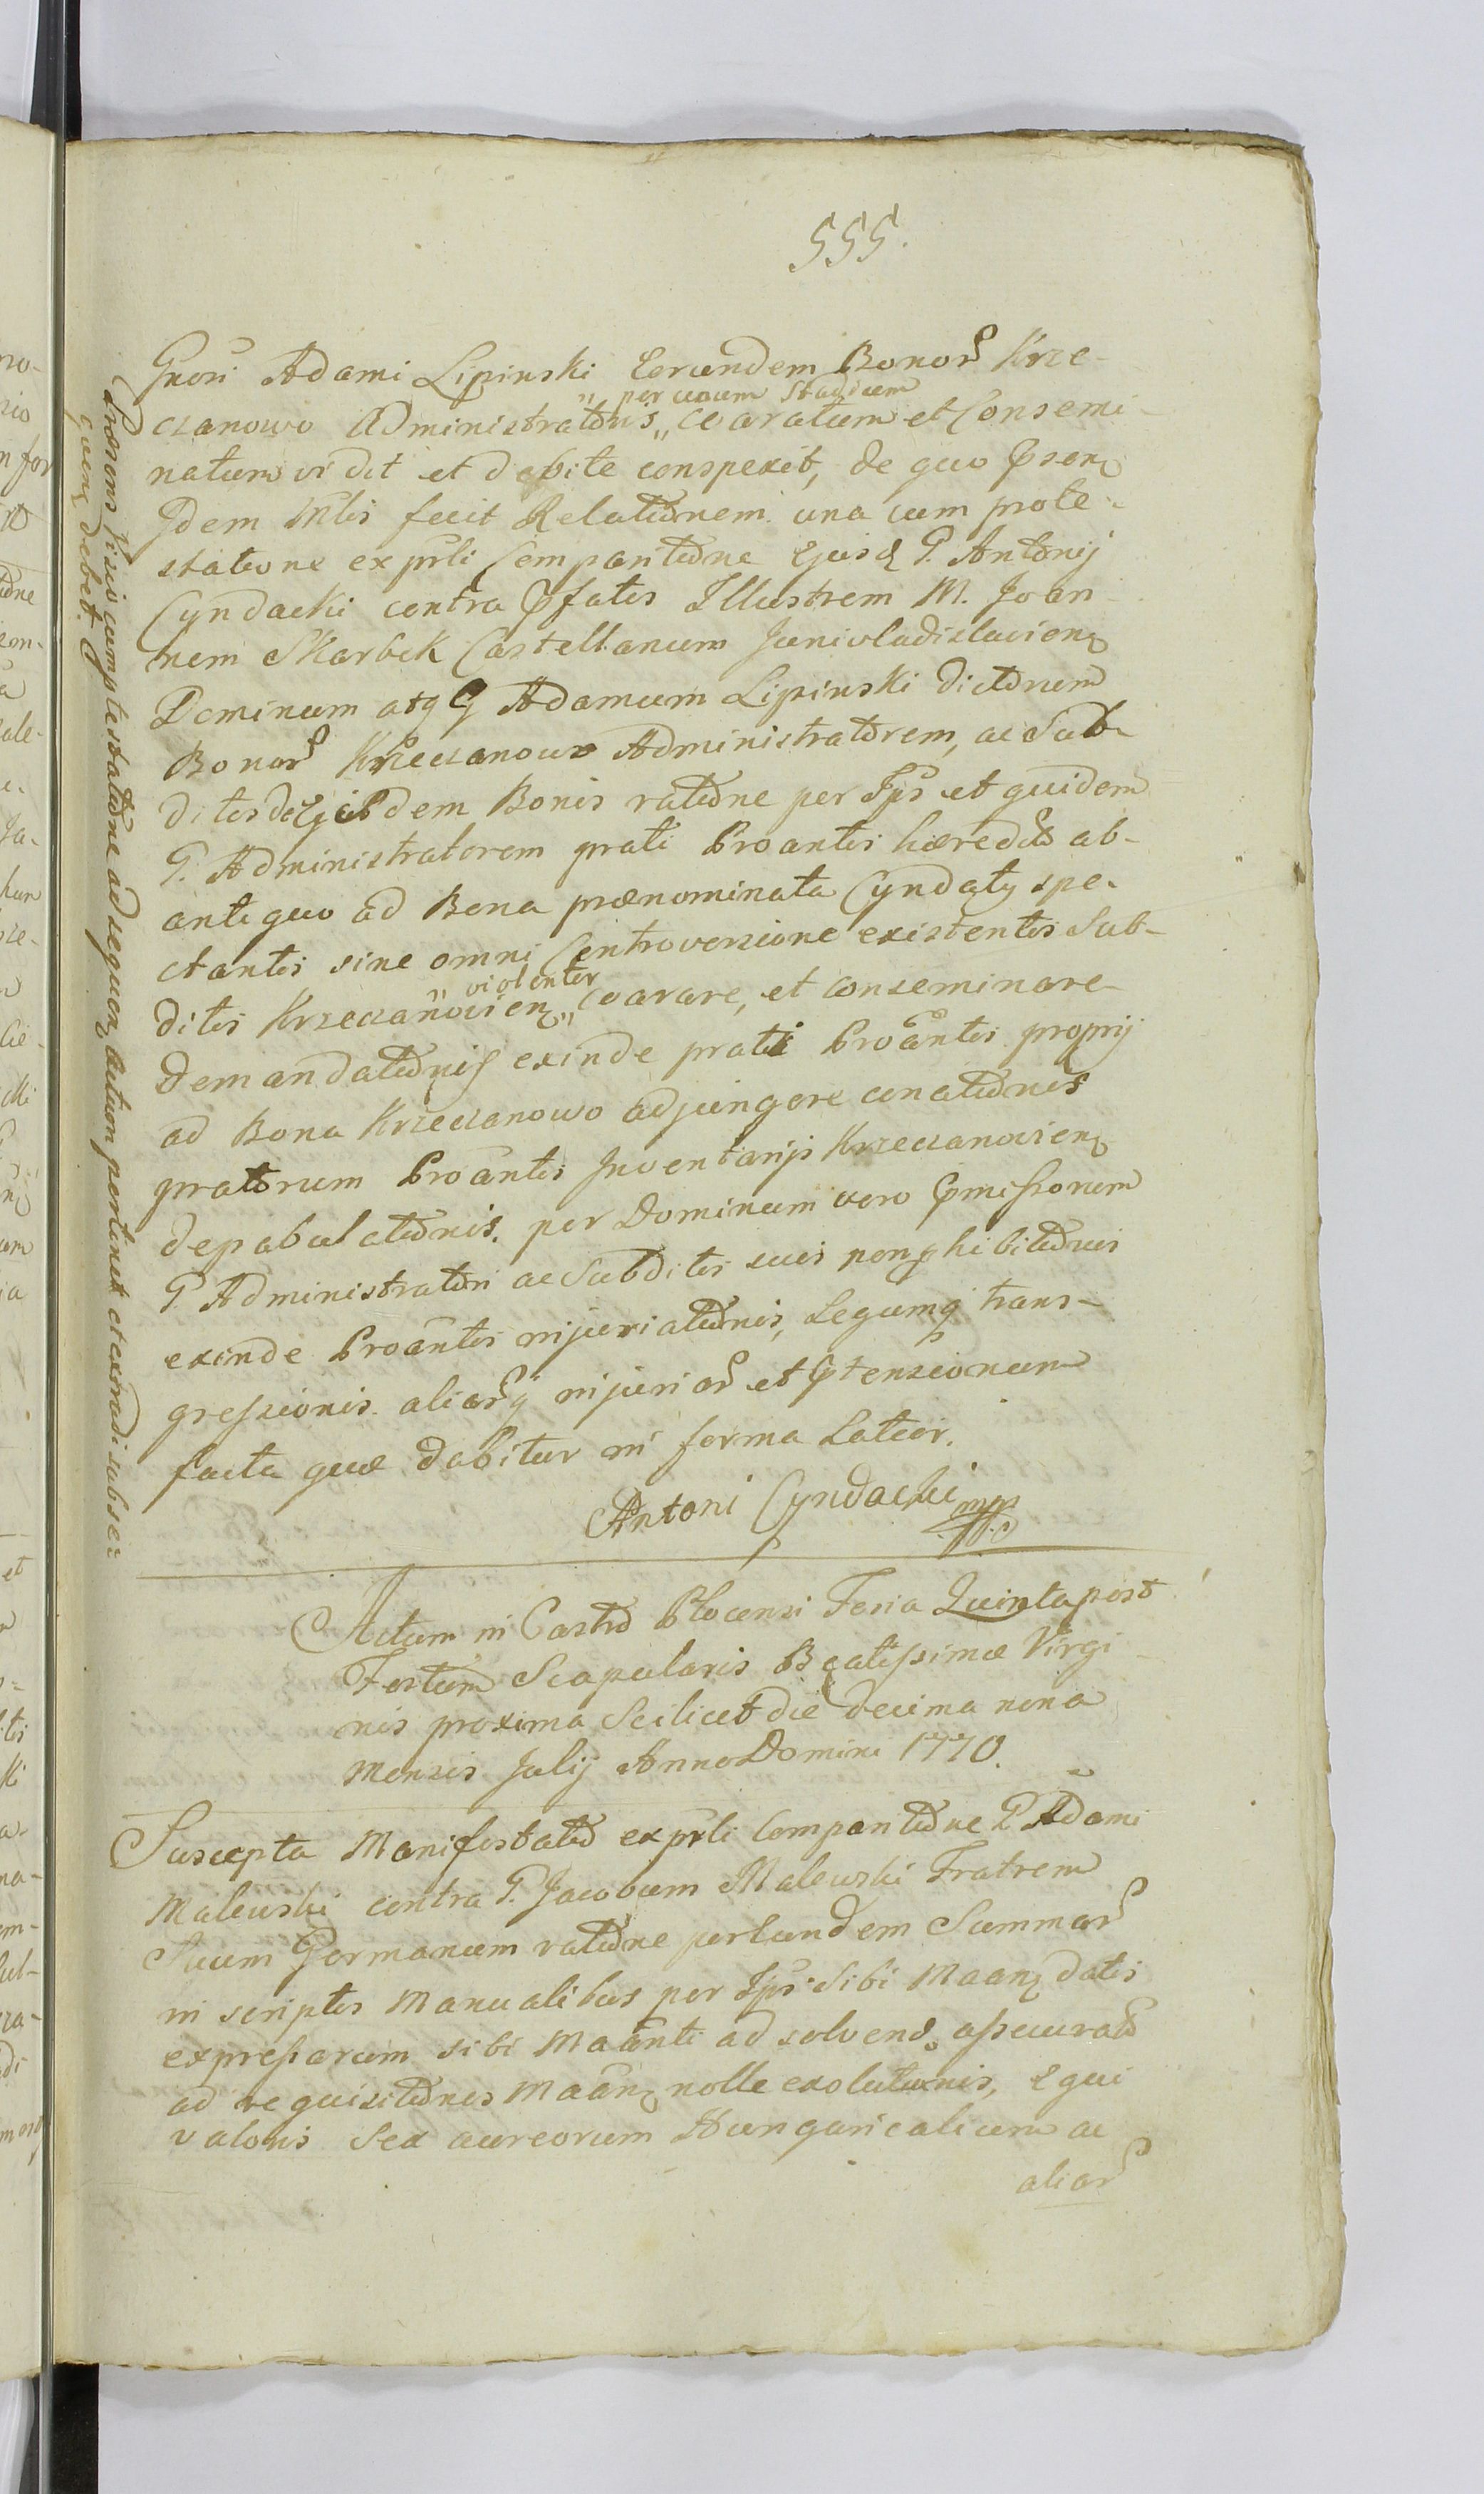 555.
Gnosi Adami Lipinski Eorundem Bonor Krze-
czanowo Administratoris „ coaratum et Consemi-
„ per unum Stadium
natum vidit et debite conspexit, de quo Psen
Idem Mtlis fecit Relationem una cum prote-
statione ex prli Comparitione Ejusd G. Antonij
Cyndacki contra Pfatos Illustrem M. Joan-
nem Skarbek Castellanum Junivladislavien
Dominum atq G Adamum Lipinski dictorum
Bonor Krzeczanowo Administratorem, ac Sub-
ditos de Ejisdem Bonis ratione per Ips et quidem
G. Administratorem prati Proantis haeredit ab-
antiquo ad Bona praenominata Cyndaty spe-
ctantis sine omni Controversione existentis Sub-
ditis Krzeczanovien „ coarare, et conseminare
„ violenter
Demandationis exinde prati Proantis proprij
ad Bona Krzeczanowo adjungere conationis
pratorum Proantis Inventarijs Krzeczanovien
depabulationis. per Dominum vero Pmissorum
G. Administratori ac Subditis suis non phibitionis
exinde Proantis injuriationis, Legumq trans-
gressionis aliarq injuriar et Ptensionum
facta quae dabitur in forma Latior.
Antoni Cyndacki mpp
Praesens Visio cum protestatione ad sequen Actum pertinet et extradi subse-
quenq debet.
Actum in Castro Plocensi Feria Quinta post
Festum Scapularis Beatissimae Virgi
nis proxima Scilicet die decima nona
Mensis Julij Anno Domini 1770.
Suscepta Manifestatio ex prli Comparitione G Adami
Malewski contra G. Jacobum Malewski Fratrem
Suum Germanum ratione per Eundem Summar
in scriptis Manualibus per Ips Sibi Maan datis
expressarum sibi Maanti ad solvend assecurat
ad requisitiones Maan nolle exolutionis, Equi
valoris Sex aureorum Hungaricalium ac
aliar